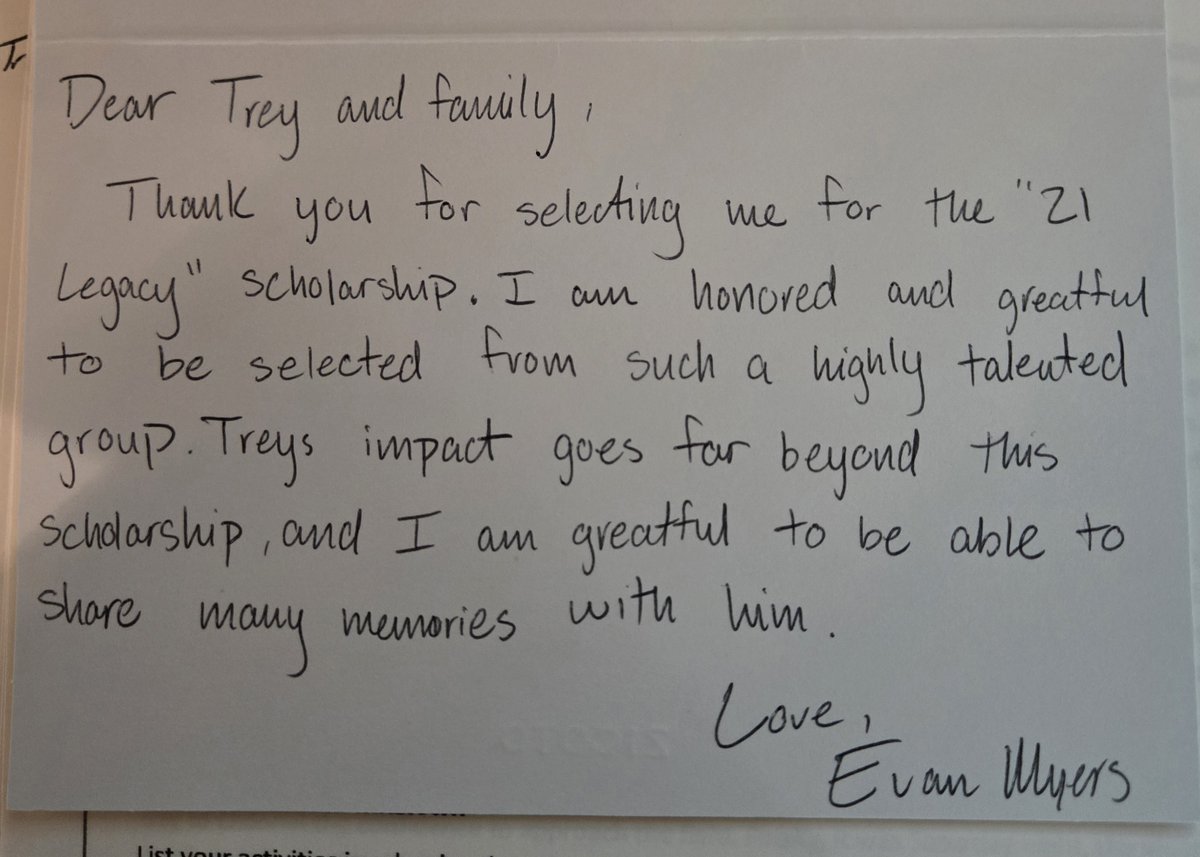 Tr
Dear Trey and family,
Thank you for selecting me for the "21
Legacy" scholarship. I am honored and greatful
to be selected from such a highly talented
group. Treys impact goes far beyond this
scholarship, and I am greatful to be able to
share many memories with him.
Love,
Evan Myers
List your activities